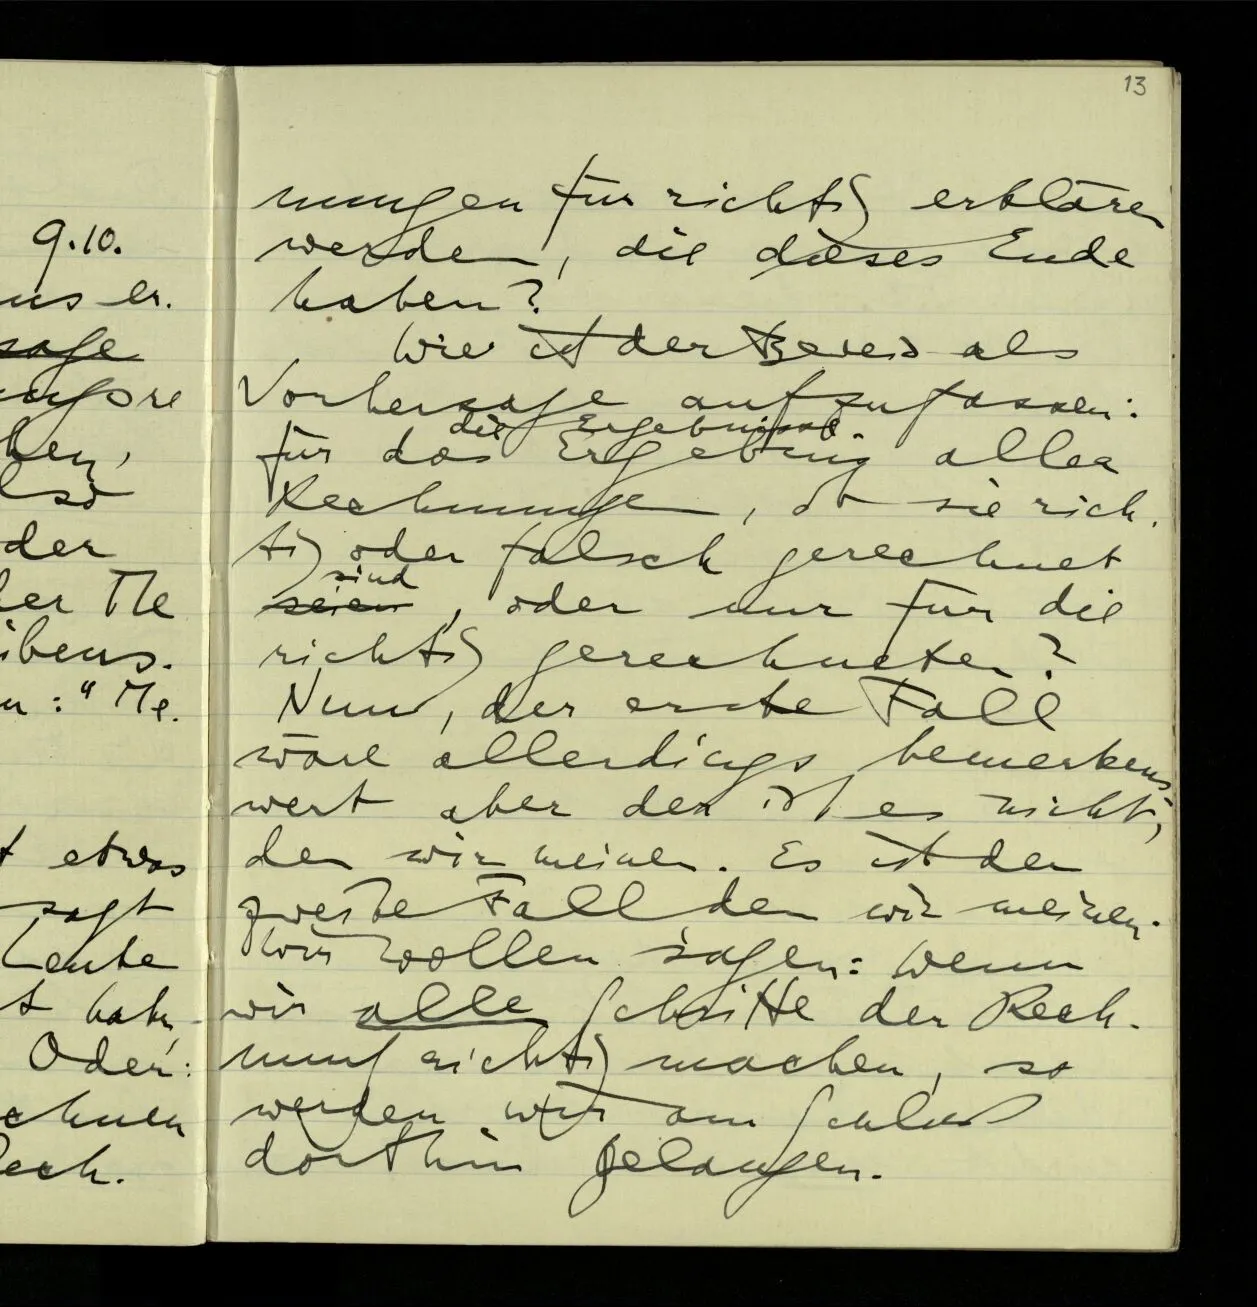 9.10.
us er.
sage
ungsre
hen,
lso
der
her Me
ibens.
n: "Me.
t etwas
sagt
Leute
t habe,
Oder:
chnen
Rech.
13
nungen für richtig erklären
werden, die dieses Ende
haben?
Wie ist der Beweis als
Vorhersage aufzufassen:
die Ergebnisse
für das Ergebnis aller
Rechnungen, ob sie rich-
tig oder falsch gerechnet
sind
seien, oder nur für die
richtig gerechneten?
Nun, der erste Fall
wäre allerdings bemerkens-
wert aber der ist es nicht,
den wir meinen. Es ist der
zweite Fall den wir meinen.
Wir wollen sagen: wenn
wir alle Schritte der Rech-
nung richtig machen, so
werden wir am Schluß
dorthin gelangen.